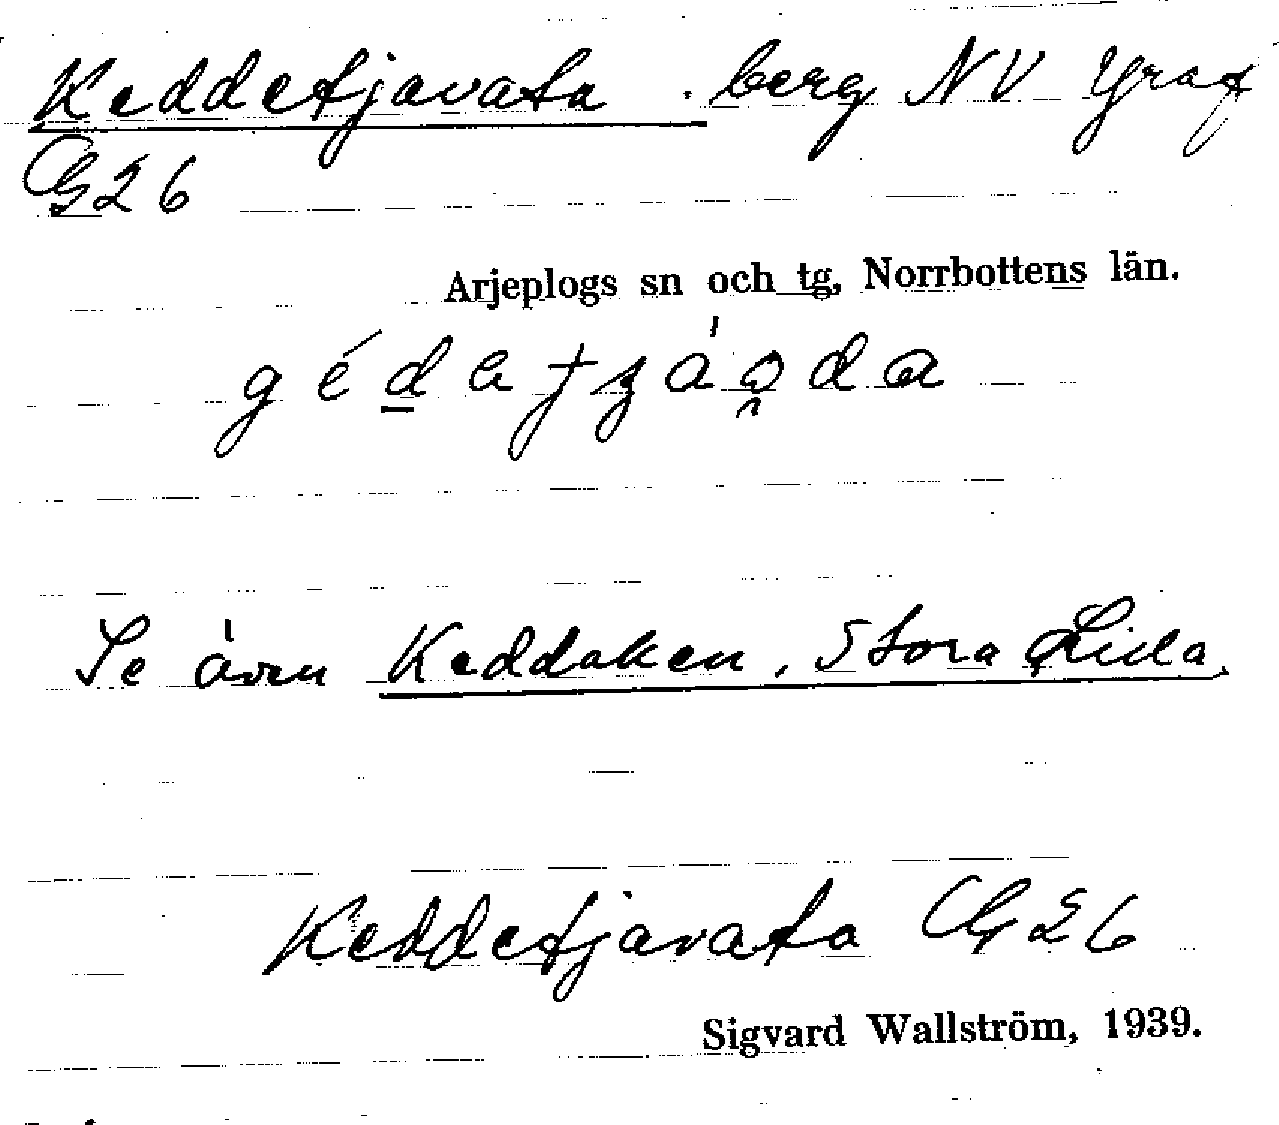 Keddetjavata . berg NV Graf
G26
Arjeplogs sn och tg, Norrbottens län.
Se även Keddaken, Stora Lida.
Keddetjavata G26
Sigvard Wallström, 1939.